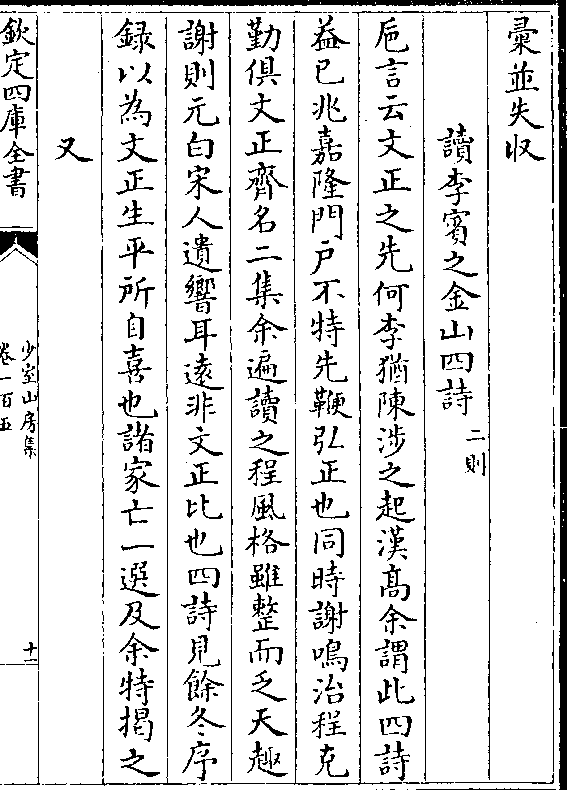 彚並失収
讀李賓之金山四詩二則
巵言云文正之先何李猶陳涉之起漢髙余謂此四詩
益已兆嘉隆門戸不特先鞭弘正也同時謝鳴治程克
勤俱文正齊名二集余遍讀之程風格雖整而乏天趣
謝則元白宋人遺響耳逺非文正比也四詩見餘冬序
録以為文正生平所自喜也諸家亡一選及余特掲之
又
欽定四庫全書
少室山房集
卷一百五
十一